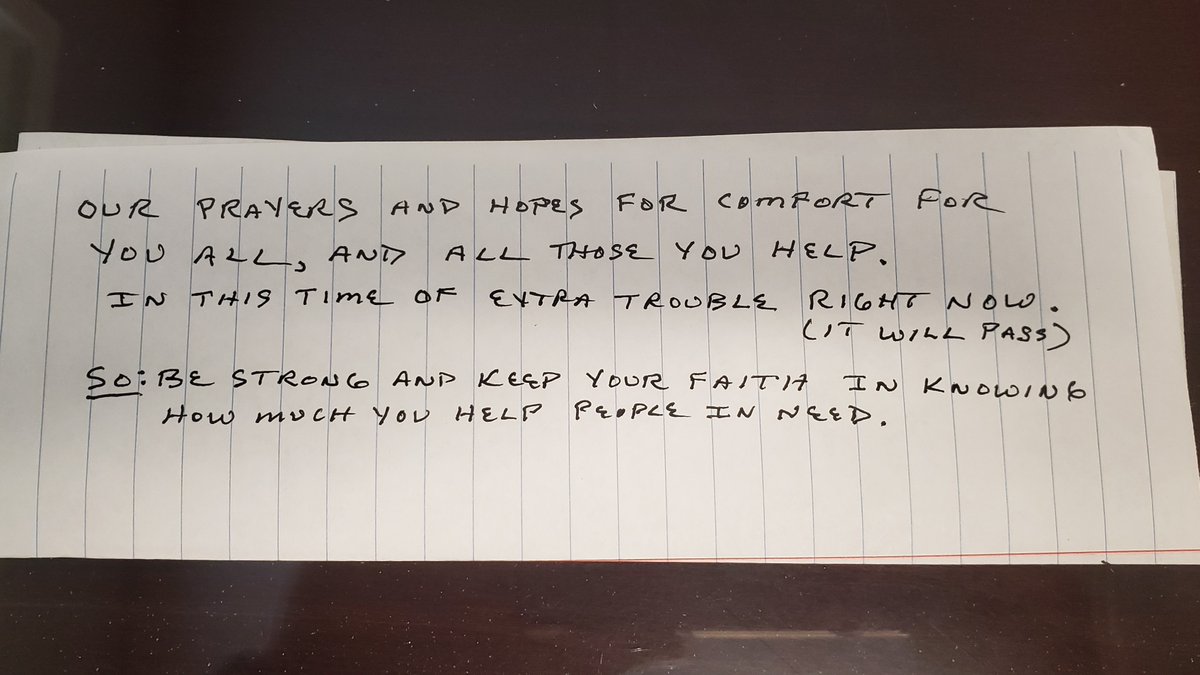 OUR PRAYERS AND HOPES FOR COMFORT FOR
YOU ALL, AND ALL THOSE YOU HELP.
IN THIS TIME OF EXTRA TROUBLE RIGHT NOW.
(IT WILL PASS)
SO: BE STRONG AND KEEP YOUR FAITH IN KNOWING
HOW MUCH YOU HELP PEOPLE IN NEED.